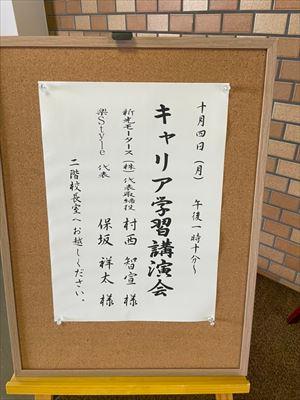 十月四日（月）　午後一時十分～
キャリア学習講演会
新光モータース（株）代表取締役　村西　智宣　様
楽Style　代表　保坂　祥太　様
二階校長室へお越しください。